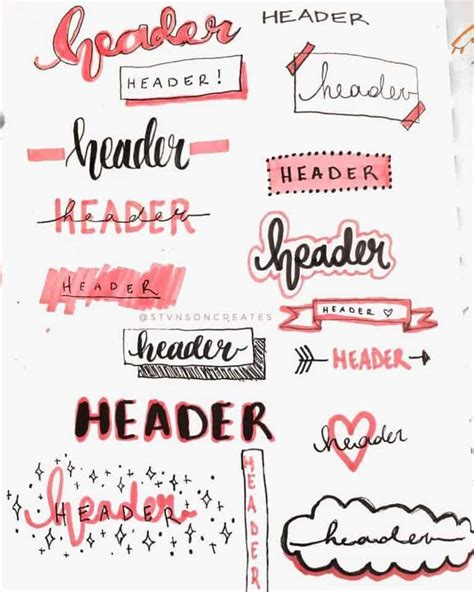 header
HEADER
HEADER!
header
header
HEADER
header
HEADER
header
HEADER
@STVNSONCREATES
HEADER ♡
header
HEADER
HEADER
header
header
HEADER
HEADER
header